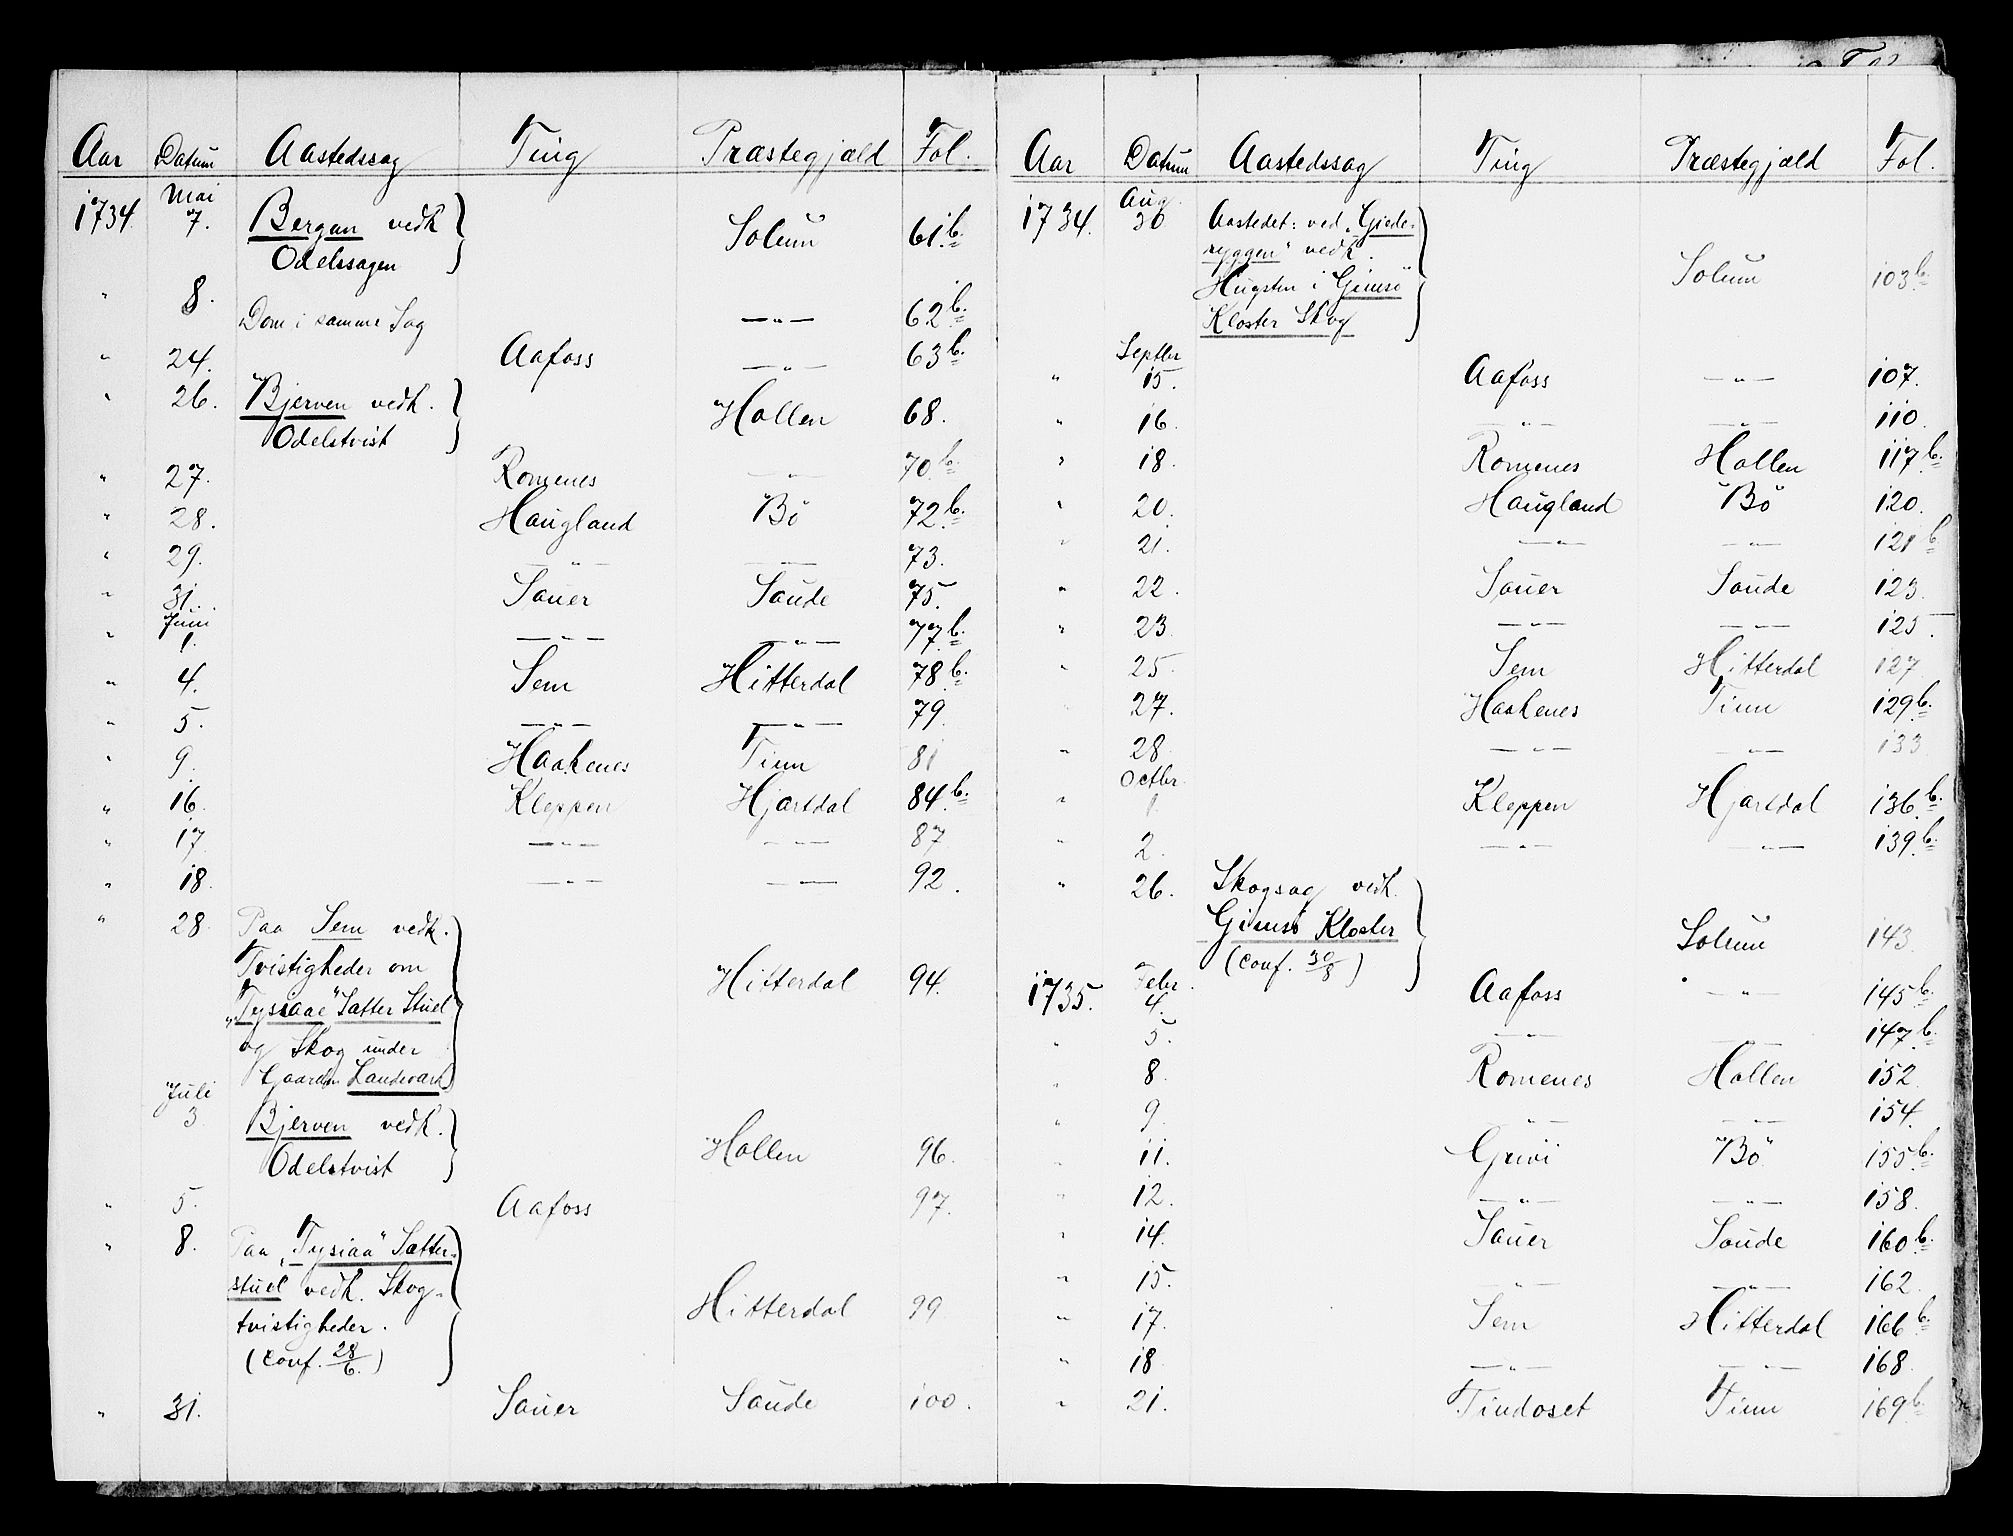 Aar Datum Aastedssag Ting Præstegjæld Fol.
1734. Mai 7. Bergan vedk Solum 61.b.
Odelssagen
" 8. Dom i samme Sag —"— 62.b.
" 24. Aafoss —"— 63.b.
" 26. Bjerven vedk. Hollen 68.
Odelstvist
" 27. Romenes —"— 70.b.
" 28. Haugland Bö 72.b.
" 29. —"— —"— 73.
" 31. Sauer Saude 75.
" Juni 1. —"— —"— 77.b.
" 4. Sem Hitterdal 78.b.
" 5. —"— —"— 79.
" 9. Haakenes Tinn 81
" 16. Kleppen Hjartdal 84.b.
" 17. —"— —"— 87
" 18. —"— —"— 92.
" 28. Paa Sem vedk.
Tvistigheder om
"Tyssaae" Sætter Stuel Hitterdal 94.
og Skog under
Gaarden Landsverk
Juli 3. Bjerven vedk. Hollen 96.
Odelstvist
" 5. Aafoss 97.
" 8. Paa "Tysiaa" Sætter-
stuel vedk. Skog- Hitterdal 99
tvistigheder.
(conf. 28/6.)
" 31. Sauer Saude 100.
Aar Datum Aastedssag Ting Præstegjæld Fol.
1734. Aug. 30 Aastedet: ved "Giede-
ryggen" vedk. Solum 103.b.
Hugsten i Gimsö
Kloster Skog
" Septbr 15. Aafoss —"— 107.
" 16. —"— —"— 110.
" 18. Romenes Hollen 117.b.
" 20. Haugland Bö 120.
" 21. —"— —"— 121.b.
" 22. Sauer Saude 123.
" 23. —"— —"— 125.
" 25. Sem Hitterdal 127
" 27. Haakenes Tinn 129.b.
" 28. —"— —"— 133.
" Octbr. 1 Kleppen Hjartdal 136.b.
" 2. —"— —"— 139.b.
" 26. Skogsag vedk.
Gimsö Kloster Solum 143.
(conf. 30/8)
1735. Febr. 4. Aafoss —"— 145.b.
" 5. —"— —"— 147.b.
" 8. Romenes Hollen 152.
" 9. —"— —"— 154.
" 11. Grivi Bö 155.b.
" 12. —"— —"— 158.
" 14. Sauer Saude 160.b.
" 15. —"— —"— 162.
" 17. Sem Hitterdal 166.b.
" 18. —"— —"— 168.
" 21. Tindoset Tinn 169.b.